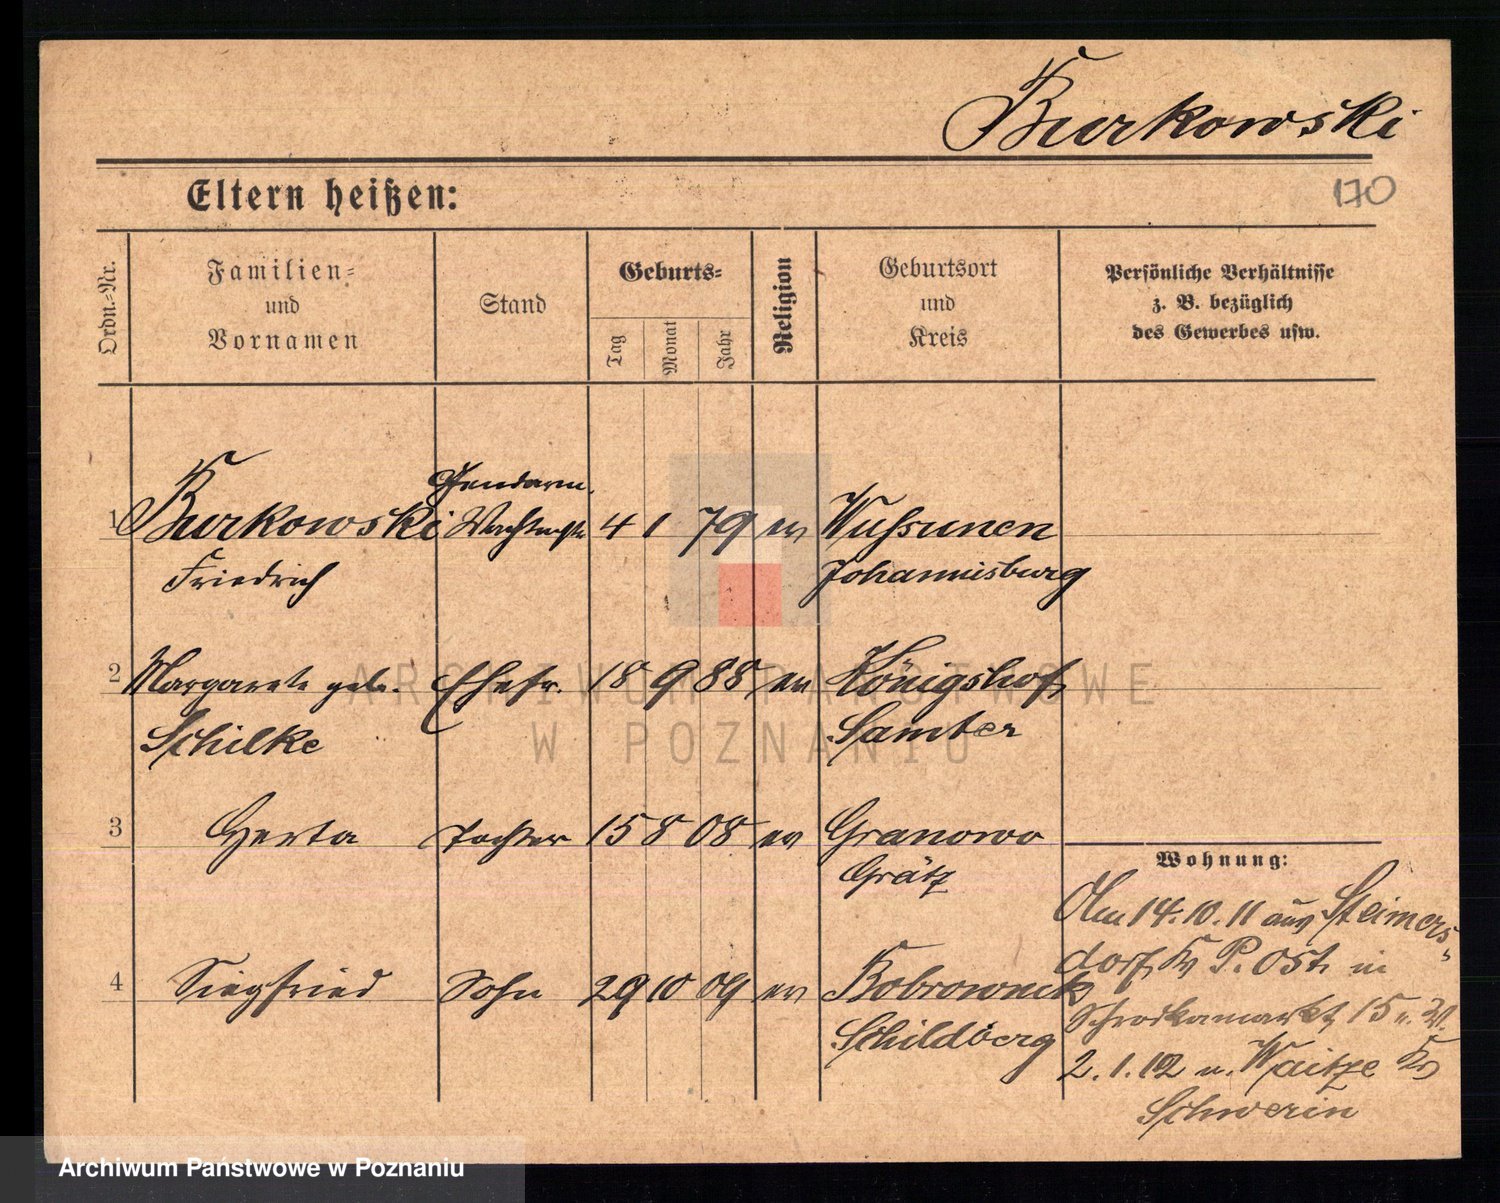 Burkowski
Eltern heißen:
170
Ordn.-Nr.
Familien-
und
Vornamen
Stand
Geburts-
Tag
Monat
Jahr
Religion
Geburtsort
und
Kreis
Persönliche Verhältnisse
z. B. bezüglich
des Gewerbes usw.
Gendarm.
1 Burkowski Wachtmstr 4 1 79 ev Wussunen
Friedrich Johannisburg
2 Margarete geb. Ehefr. 18 9 88 ev Königshof
Schilke Samter
3 Herta Tochter 15 8 08 ev Granowo
Grätz
Wohnung:
Am 14.10.11 aus Steimers-
dorf Kr P. Ost. in
4 Siegfried Sohn 29 10 09 ev Bobrownik
Schrodkamarkt 15 u. W.
Schildberg
2.1.12 n. Waitze Kr
Schwerin
ARCHIWUM PAŃSTWOWE
W POZNANIU
Archiwum Państwowe w Poznaniu